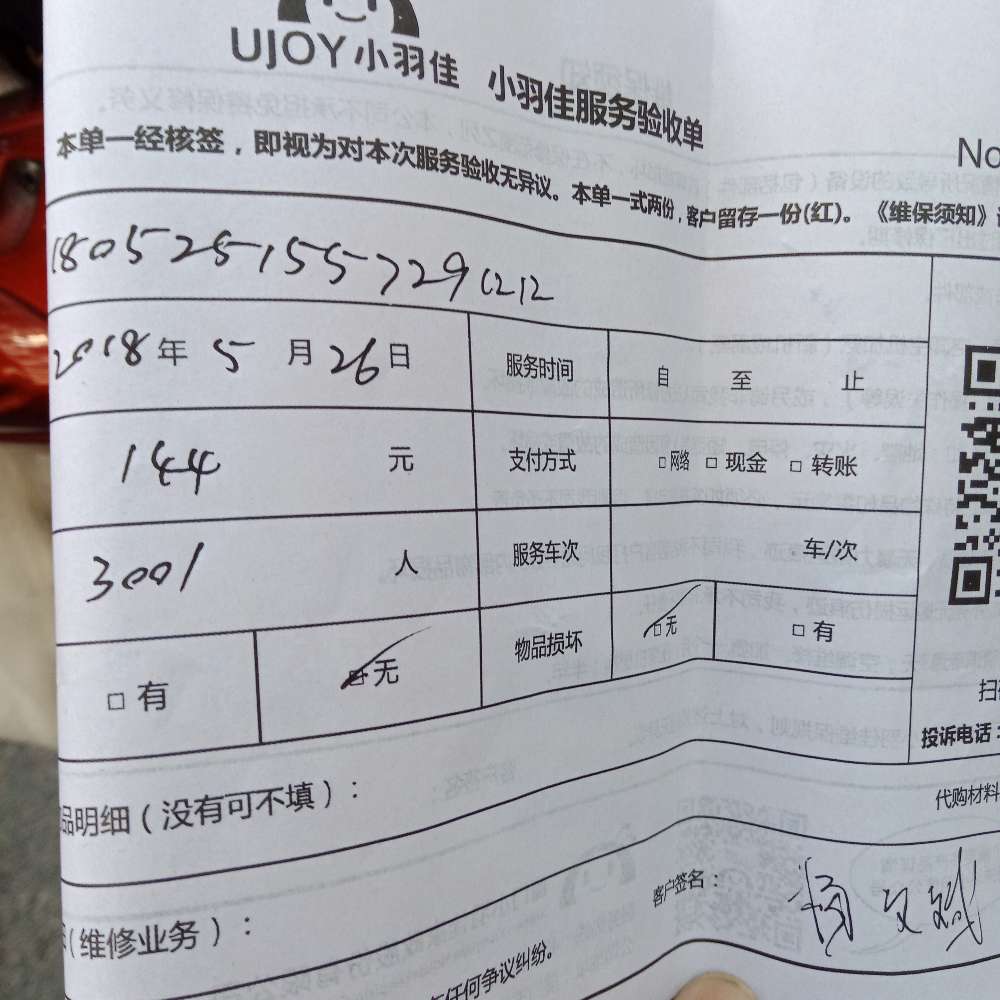 UJOY小羽佳 小羽佳服务验收单
No
本单一经核签，即视为对本次服务验收无异议。本单一式两份，客户留存一份(红)。《维保须知》
1805251557291212
2018年 5 月 26 日 服务时间 自 至 止
144 元 支付方式 □网络 □现金 □转账
3001 人 服务车次 车/次
□有 □无 物品损坏 □无 □有
扫
投诉电话：
品明细(没有可不填)：
代购材料
客户签名：杨文斌
(维修业务)：
任何争议纠纷。